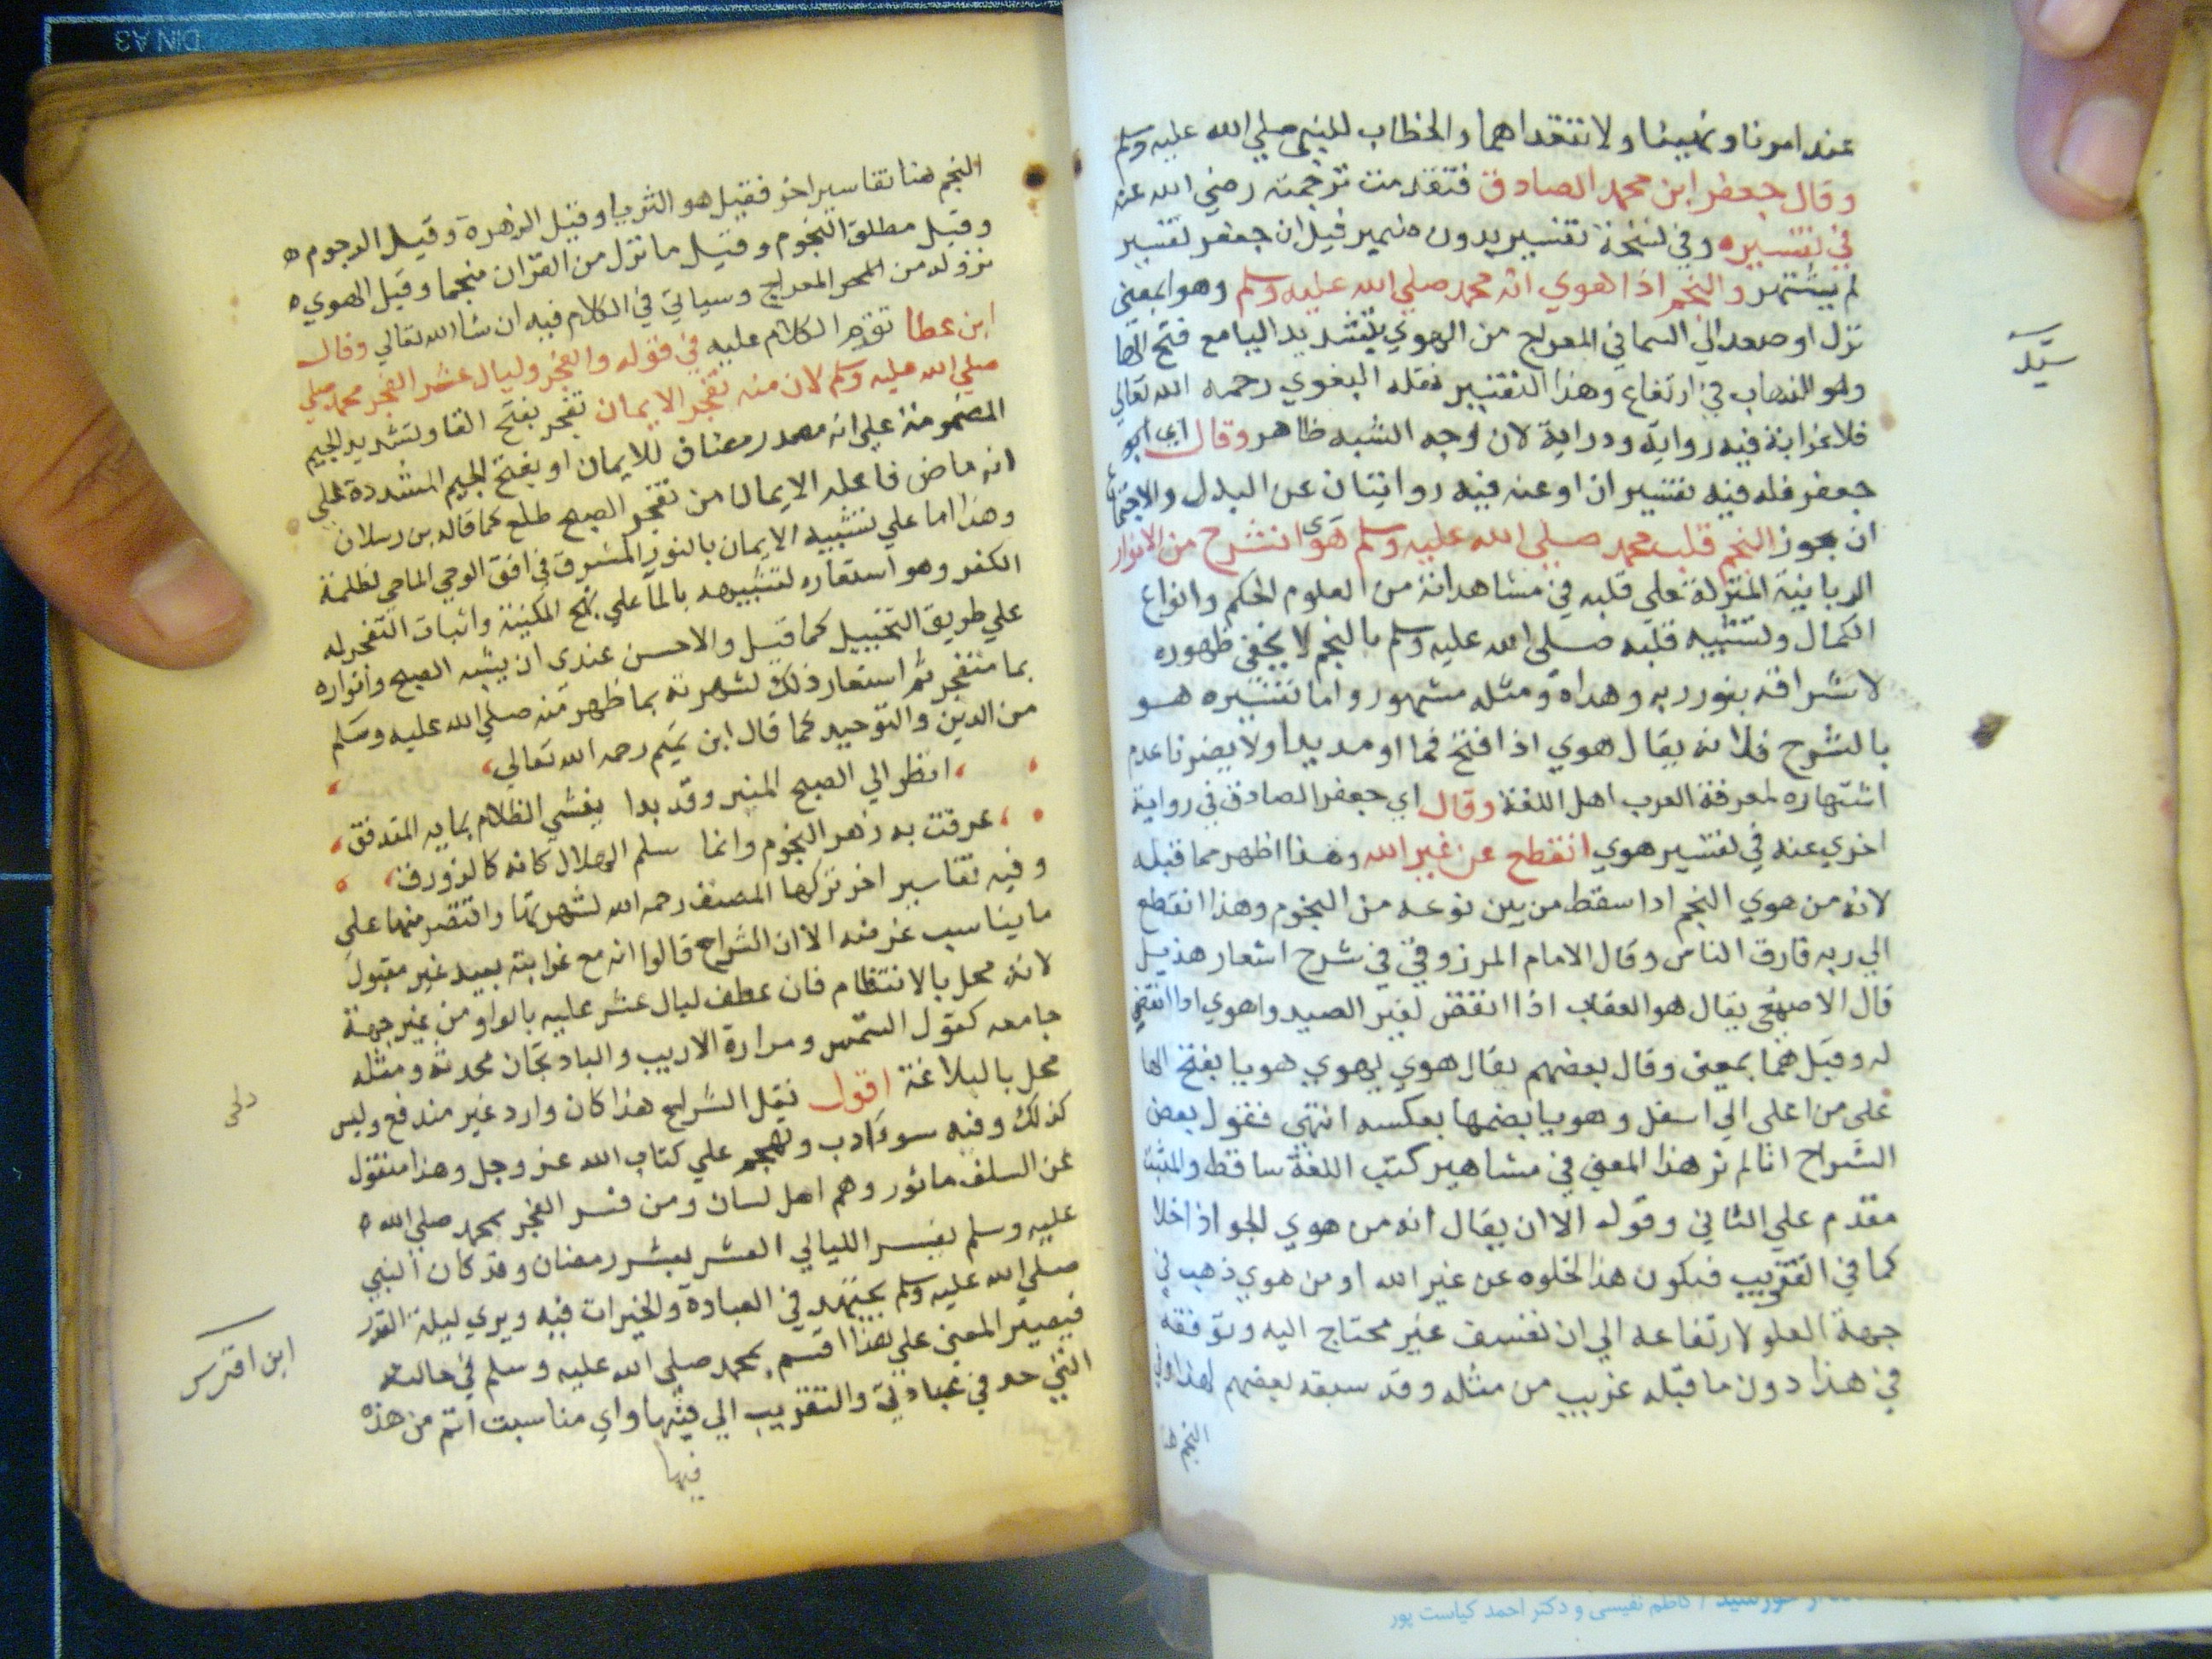 عند امرنا ونهينا ولا تتقداهما والخطاب للنبي صلي الله عليه وسلم
وقال جعفر ابن محمد الصادق فتقدمت ترجمته رضي الله عنه
في تفسيره وفي نسخة تفسير بدون ضمير قيل ان جعفر تفسير
لم يشتهر والنجم اذا هوي انه محمد صلي الله عليه وسلم وهو بمعني
نزل او صعد الي السما في المعراج من الهوي بتشديد اليا مع فتح الها
وهو الذهاب في ارتفاع وهذا التفسير نقله البغوي رحمه الله تعالي
فلا غرابة فيه رواية ودراية لان وجه الشبه ظاهر وقال اي ابو
جعفر فله فيه تفسيران او عنه فيه روايتان عن البدل والاجتماع
ان يجوز النجم قلب محمد صلي الله عليه وسلم هوى انشرح من الانوار
الربانية المنزلة علي قلبه في مشاهداته من العلوم الحكم وانواع
الكمال وتشبيه قلبه صلي الله عليه وسلم بالنجم لا يخفي ظهوره
لاشراقه بنور ربه وهداه ومثله مشهور واما تفسيره هو
بالشرح فلانه يقال هوي اذا فتح فما او مد يدا ولا يضرنا عدم
اشتهاره لمعرفة العرب اهل اللغة وقال اي جعفر الصادق في رواية
اخري عنه في تفسير هوي انقطع عن غير الله وهذا اظهر مما قبله
لانه من هوي النجم اذا سقط من بين نوعه من النجوم وهذا انقطع
الي ربه فارق الناس وقال الامام المرزوقي في شرح اشعار هذيل
قال الاصمعي يقال هو العقاب اذا انقض لغير الصيد واهوي اذا انقض
له وقيل هما بمعني وقال بعضهم يقال هوي يهوي هويا بفتح الها
علي من اعلي الي اسفل وهويا بضمها بعكسه انتهي فقول بعض
الشراح انا لم نر هذا المعني في مشاهير كتب اللغة ساقط والمثبت
مقدم علي الثاني وقوله الا ان يقال انه من هوي الجو اذ اخلا
كما في التقريب فيكون هذا الخلوه عن غير الله او من هوي ذهب في
جهة العلو لارتفاعه الي ان نفسف غير محتاج اليه وتوقفه
في هذا دون ما قبله غريب من مثله وقد سبقه بعضهم لهذا وفي
النجم هنا
سيد
النجم هنا تفاسير اخر فقيل هو الثريا وقيل الزهرة وقيل الرجوم
وقيل مطلق النجوم وقيل ما نزل من القران منجما وقيل الهوي
نزوله من المعراج وسياتي في الكلام فيه ان شا الله تعالي وقال
ابن عطا تقدم الكلام عليه في قوله والفجر وليال عشر الفجر محمد صلي
صلي الله عليه وسلم لان منه تفجر الايمان تفجر بفتح الفا وتشديد الجيم
المضمومة علي انه مصدر مضاف للايمان او بفتح الجيم المشددة علي
انه ماض فاعله الايمان من تفجر الصبح طلع كما قاله بن رسلان
وهذا اما علي تشبيه الايمان بالنور المشرق في افق الوحي الماحي لظلمة
الكفر وهو استعاره لتشبيهه بالما علي نهج المكنية واثبات التفجر له
علي طريق التخييل كما قيل والاحسن عندي ان يشبه الصبح وانواره
بما منفجر ثم استعار ذلك لشهرته بما ظهر منه صلي الله عليه وسلم
من الدين والتوحيد كما قال ابن تميم رحمه الله تعالي
انظر الي الصبح المنير وقد بدا يغشي الظلام بمايه المتدفق
عرفت به زهر النجوم وانما سلم الهلال كانه كالزورق
وفيه تفاسير اخر تركها المصنف رحمه الله لشهرتها واقتصر منها علي
ما يناسب غرضه الا ان الشراح قالوا انه مع غرابته بعيد غير مقبول
لانه مخل بالانتظام فان عطف ليال عشر عليه بالواو من غير جهة
جامعه كقول الشمس ومرارة الاريب والبادنجان محدثة ومثله
مخل بالبلاغة اقول نقل الشراح هذا كان وارد غير مندفع وليس
كذلك وفيه سوء ادب وتهجم علي كتاب الله عز وجل وهذا منقول
عن السلف ماثور وهم اهل لسان ومن فسر الفجر بمحمد صلي الله
عليه وسلم يفسر الليالي العشر بعشر رمضان وقد كان النبي
صلي الله عليه وسلم يجتهد في العبادة والخيرات فيه ويري ليلة القدر
فيصير المعني علي هذا اقسم بمحمد صلي الله عليه وسلم في حالته
التي جد في عبادتي والتقريب الي فيها واي مناسبت اتم من هذه
فيها
دلجي
ابن اقبرس
DIN A3
كاظم نفيسى و دكتر احمد كياست پور